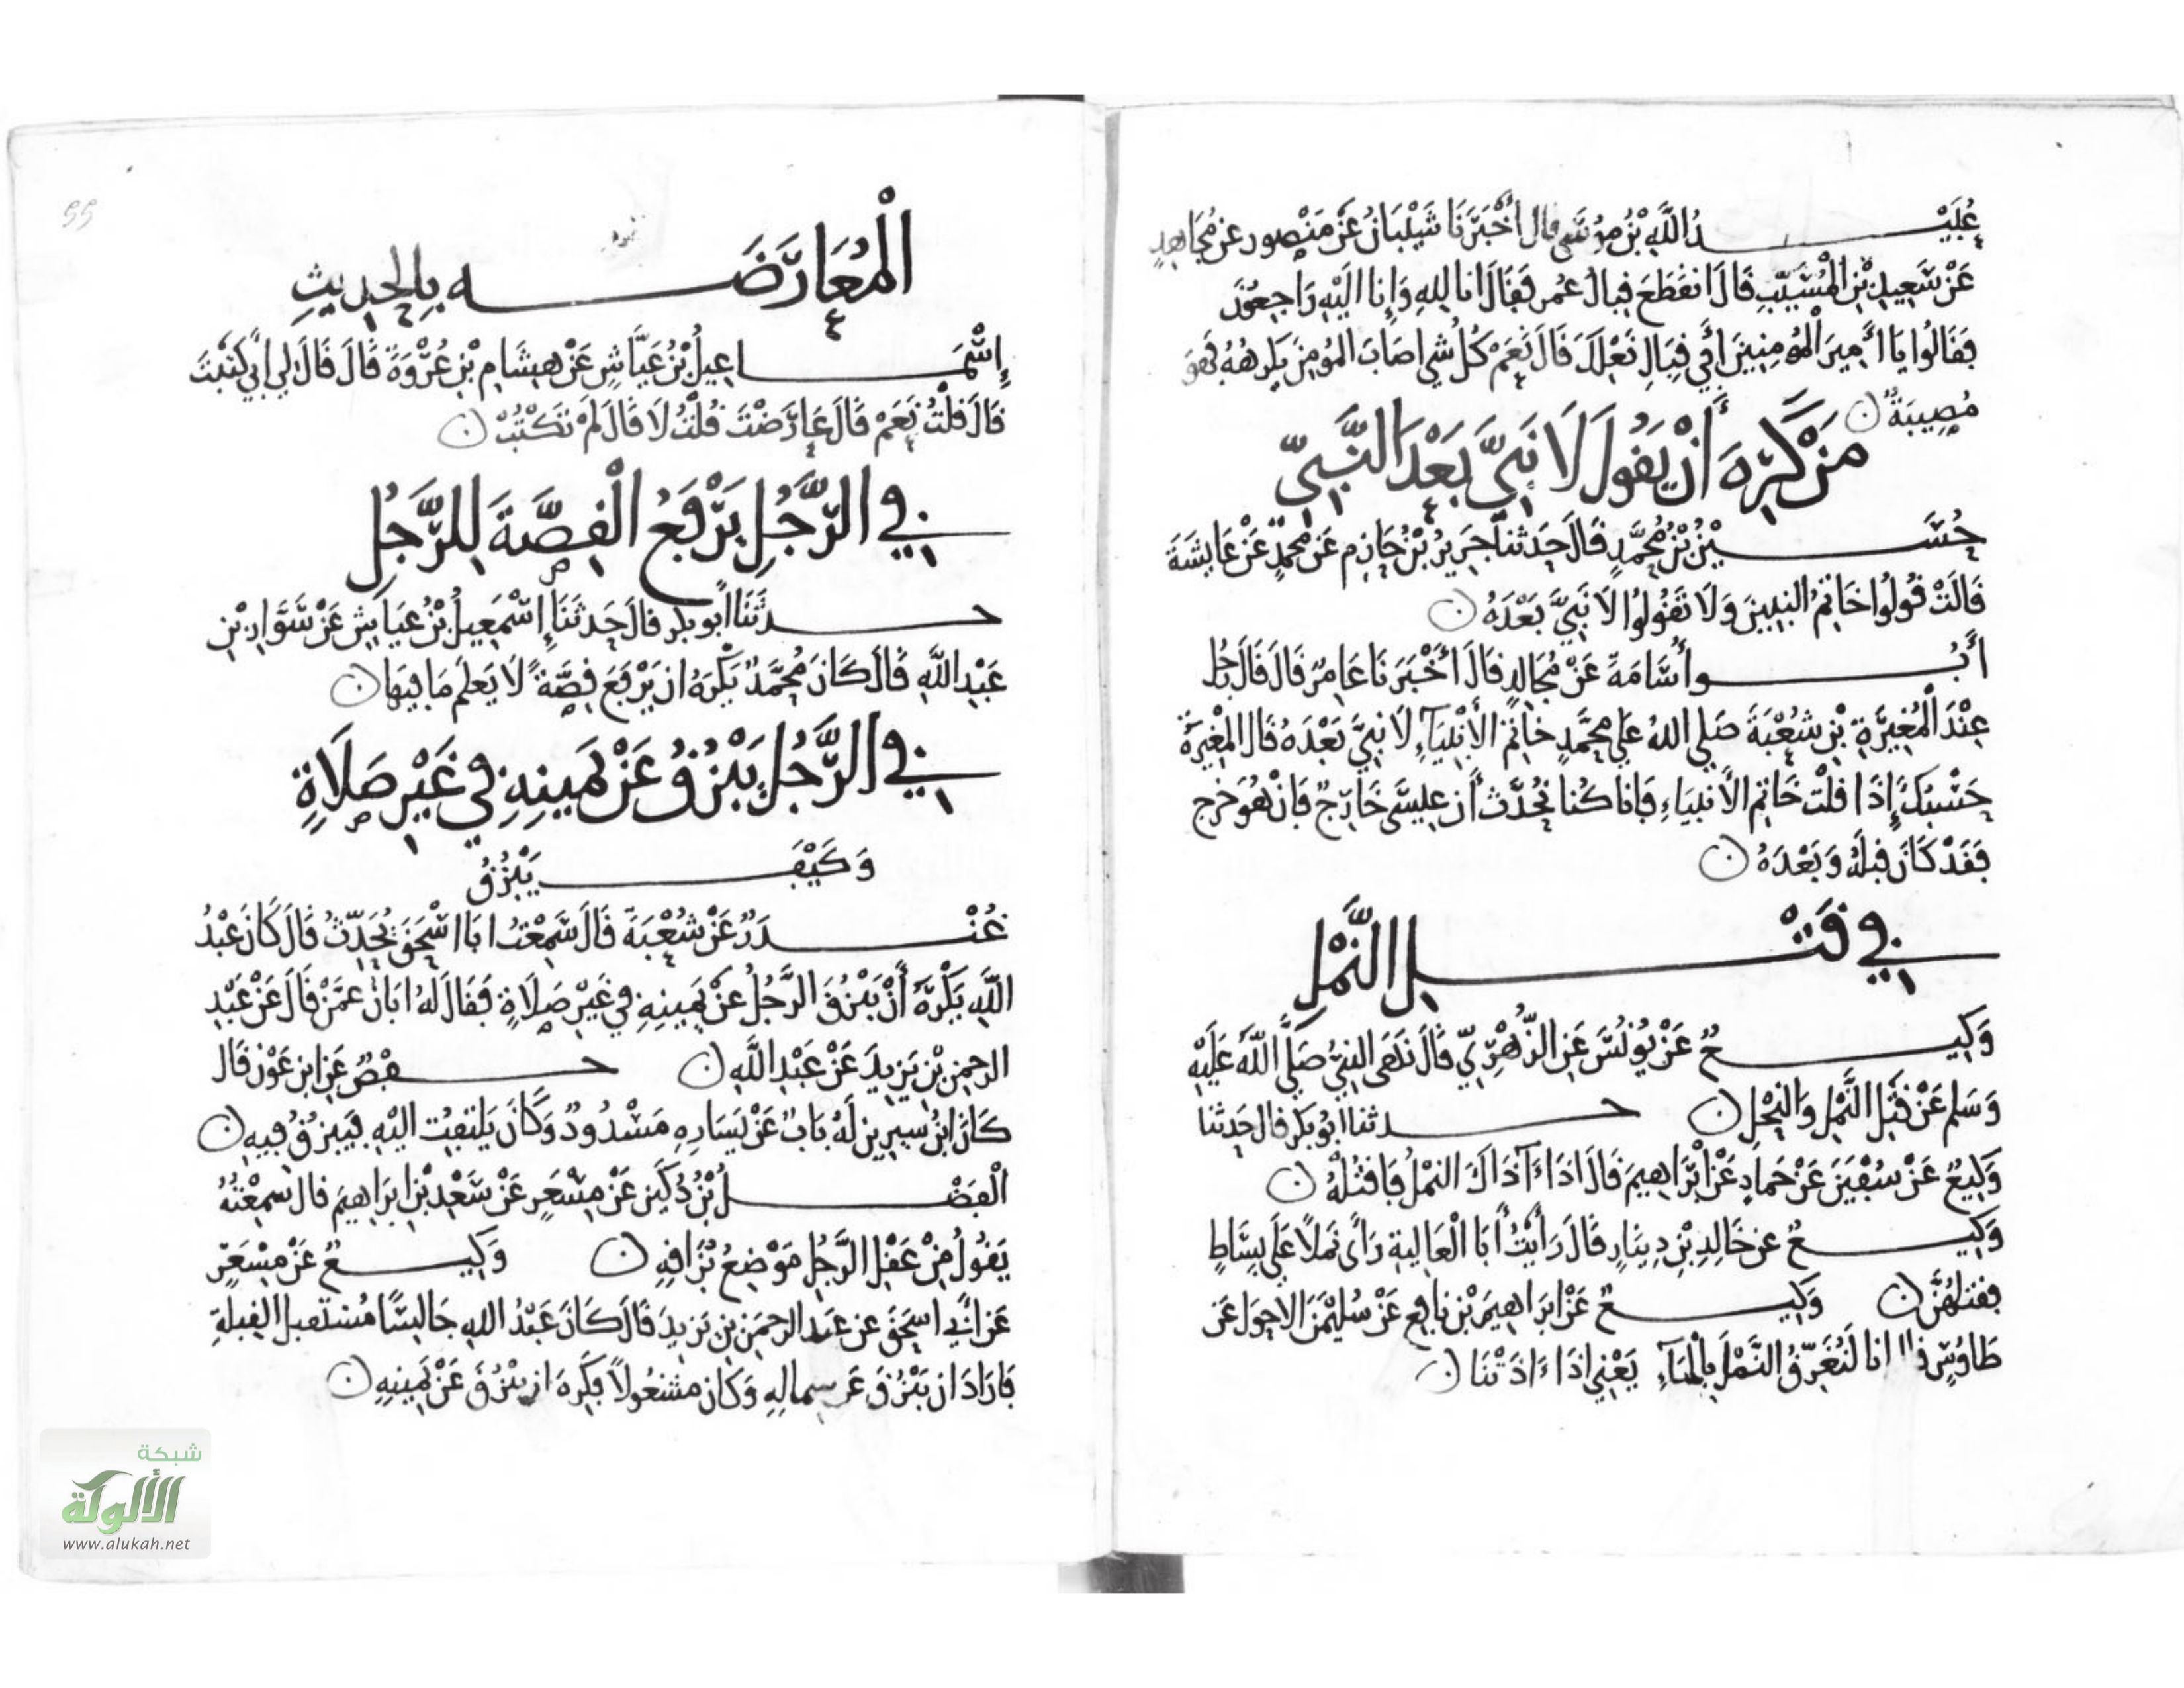 عُبَيْدُ اللَّهِ بْنُ مُوسَى قال أَخْبَرَنَا شَيْبَانُ عَنْ مَنْصُور عن مُجَاهِدٍ
عَنْ سَعِيدِ بْنِ الْمُسَيَّبِ قَالَ انقَطَعَ قِبَالُ عُمر فَقَالَ انا لِلهِ وَإِنا الَيْهِ رَاجِعُونَ
فَقَالُوا يَا أَمِيرَ الْمُومِنِينَ أَفِي قِبَالِ نَعْلِكَ قَالَ نَعَمْ كُلُّ شي اصَابَ المُومِنَ يَكرَهُهُ فَهوَ
مُصِيبَةٌ
مَنْ كَرِهَ أَنْ يَقُولَ لَا نَبِيَّ بَعْدَ النَّبِيِّ
حُسَيْنُ بْنُ مُحَمَّدٍ قَالَ حَدثنا جَرِيرُ بْنُ حَازِم عَن مُحمدٍ عَنْ عَايِشَةَ
قَالَتْ قُولُوا خَاتِمُ النبِيينَ وَلَا تَقُولُوا لَا نَبِيَّ بَعْدَهُ
أَبُو أُسَامَةَ عَنْ مُجَالِدٍ قَالَ أَخْبَرَنَا عَامِرٌ قَالَ قَالَ رَجُل
عِنْدَ الْمُغِيرَةِ بْنِ شُعْبَةَ صَلى اللهُ على مُحمَّدٍ خاتمِ الأَنْبِيَآءِ لَا نبيَّ بَعْدَهُ قَال المغِيرَةُ
حَسْبُكَ إِذَا قلْتَ خَاتِم الأنبيَاءِ فَانا كُنا نُحَدَّث أن عِيسَى خَارِجٌ فَإنْ هُوَ خَرج
فَقَدْ كَانَ قبلهُ وَبَعْدَهُ
في قَتْلِ النَّمْلِ
وَكِيعٌ عَنْ يُونُسَ عَنِ الزُّهْرِيِّ قَالَ نَهَى النبيُّ صَلَّى اللَّهُ عَلَيْهِ
وَسَلم عَنْ قَتْلِ النَّمْلِ وَالنحْلِ حدثنا ابُو بَكر قال حَدثنا
وَكِيعٌ عَنْ سُفْيَنَ عَنْ حَمادٍ عَنْ ابْرَاهِيمَ قَالَ اذَا ءَاذَاكَ النمْلُ فَاقتُلْهُ
وَكِيعٌ عن خَالِدِ بْنِ دِينَارٍ قَالَ رَأَيْتُ أَبَا الْعَالِيَةِ رَأَى نَملًا عَلَى بِسَاطٍ
فقتلهُنَّ وَكِيعٌ عَنْ ابرَاهِيمَ بْنِ نافِع عَنْ سُلَيْمَنَ الاحوَل عَن
طَاوُسٍ قال انا لَنُغَرِّقُ النَّمْلَ بِالْمَآءِ يَعْنِي اذَا ءَاذَتْنَا
55
الْمُعَارَضَه بِالحَدِيثِ
إِسْمَاعِيلُ بْنُ عَيَّاشٍ عَنْ هِشَامِ بْنِ عُرْوَةَ قَالَ قَالَ لي أبي كَتَبْتَ
قَالَ قلْتُ نَعَمْ قَالَ عَارَضْتَ قُلْتُ لَا قَالَ لَمْ تَكْتُبْ
في الرَّجُلِ يَرْفَعُ الْقِصَّةَ لِلرَّجُلِ
حدثَنَا ابُو بكر قالَ حَدثَنَا إِسْمَعِيلُ بْنُ عَيَاش عَنْ سَوَّادِ بْنِ
عَبْدِ اللَّهِ قَالَ كَانَ مُحَمَّدٌ يَكْرَهُ ان يَرْفَعَ قِصَّةً لَا يَعلَم مَا فِيهَا
في الرَّجُلِ يَبْزُقُ عَنْ يَمِينِهِ فِي غَيْرِ صَلَاةٍ
وَكَيْفَ يَبْزُقُ
غُنْدَرٌ عَنْ شُعْبَةَ قَالَ سَمِعْتُ ابَا اسْحَقَ يُحَدِّثُ قَالَ كَانَ عَبْدُ
اللَّهِ يَكْرَهُ أَنْ يَبْزُقَ الرَّجُلُ عَنْ يَمِينِهِ فِي غَيْرِ صَلَاةٍ فَقَالَ لَهُ ابَانُ عمَّنْ قَالَ عَنْ عَبْدِ
الرحمنِ بْنِ يَزِيدَ عَنْ عَبْدِ اللَّهِ حفصٌ عَنِ ابن عَوْن قَال
كَانَ ابْنُ سيرِين لَهُ بَابٌ عَنْ يَسَارِهِ مَسْدُودٌ وَكَانَ يَلتفِتُ الَيْهِ فيَبزُقُ فِيهِ
الْفَضْلُ بْنُ دُكَيْنٍ عَنْ مِسْعَرٍ عَنْ سَعْدِ بْنِ ابرَاهِيمَ قال سَمِعْتُهُ
يَقُولُ مِنْ عَقْلِ الرَّجُلِ مَوْضِعُ بُزَاقِهِ وَكِيعٌ عَنْ مِسْعَرٍ
عَن أبي اسحَقَ عن عبْد الرحمَنِ بْنِ يَزِيدَ قَالَ كَانَ عَبْدُ اللهِ جَالِسًا مُسْتقبل القِبلَةِ
فَارَادَ ان يَبْزُقَ عَن سماله وَكان مشْغُولًا فكَرِهَ ان يبْزُقَ عَنْ يَمِينِهِ
شبكة
الألوكة
www.alukah.net